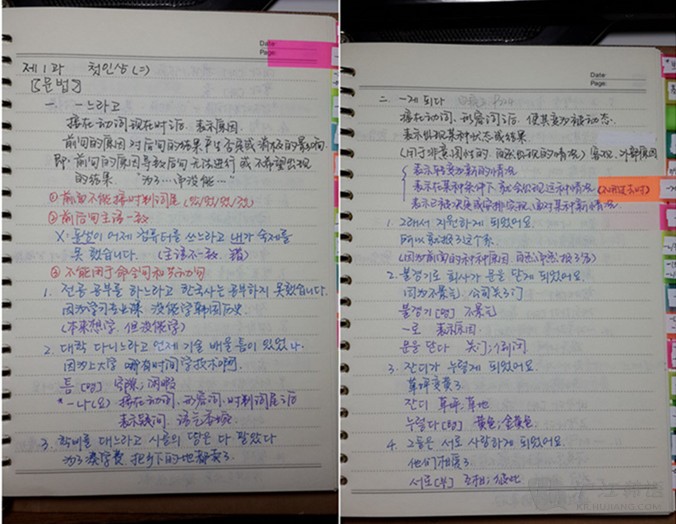 Date:
Page:
제1과 첫인상(二)
[문법]
一 -느라고
接在动词现在时词后, 表示原因
前句的原因对后句的结果产生否定或消极的影响
即, 前句的原因导致后句无法进行或不希望出现
的结果. "为了…而没能…"
① 前面不能接时制词尾 (았/었/였/겠)
② 前后句主语一致
X: 동생이 어제 컴퓨터를 쓰느라고 내가 숙제를
못 했습니다. (主语不一致, 错)
③ 不能用于命令句和共动句
1. 전공 공부를 하느라고 한국사는 공부하지 못했습니다.
因为学习专业课, 没能学韩国历史
(本来想学, 但没能学)
2. 대학 다니느라고 언제 기술 배울 틈이 있었나.
因为上大学 哪有时间学技术啊.
틈 [명] 空隙; 闲暇
* -나(요) 接在动词, 形容词, 时制词尾后
表示疑问, 语气委婉
3. 학비를 대느라고 시골의 땅은 다 팔았다
为了凑学费, 把乡下的地都卖了.
Date:
Page:
二. -게 되다
接在动词, 形容词后, 使其变为被动态.
表示出现某种状态或结果
1. 그래서 지원하게 되었어요.
所以就报了这个系.
2. 불경기로 회사가 문을 닫게 되었어요.
因为不景气, 公司关了门
불경기 [명] 不景气
-로 表示原因
문을 닫다 关门; 倒闭
3. 잔디가 누렇게 되었어요.
草坪变黄了
잔디 草坪; 草地
누렇다 [형] 黄色; 金黄色
4. 그들은 서로 사랑하게 되었어요.
他们相爱了.
서로 [부] 互相; 彼此